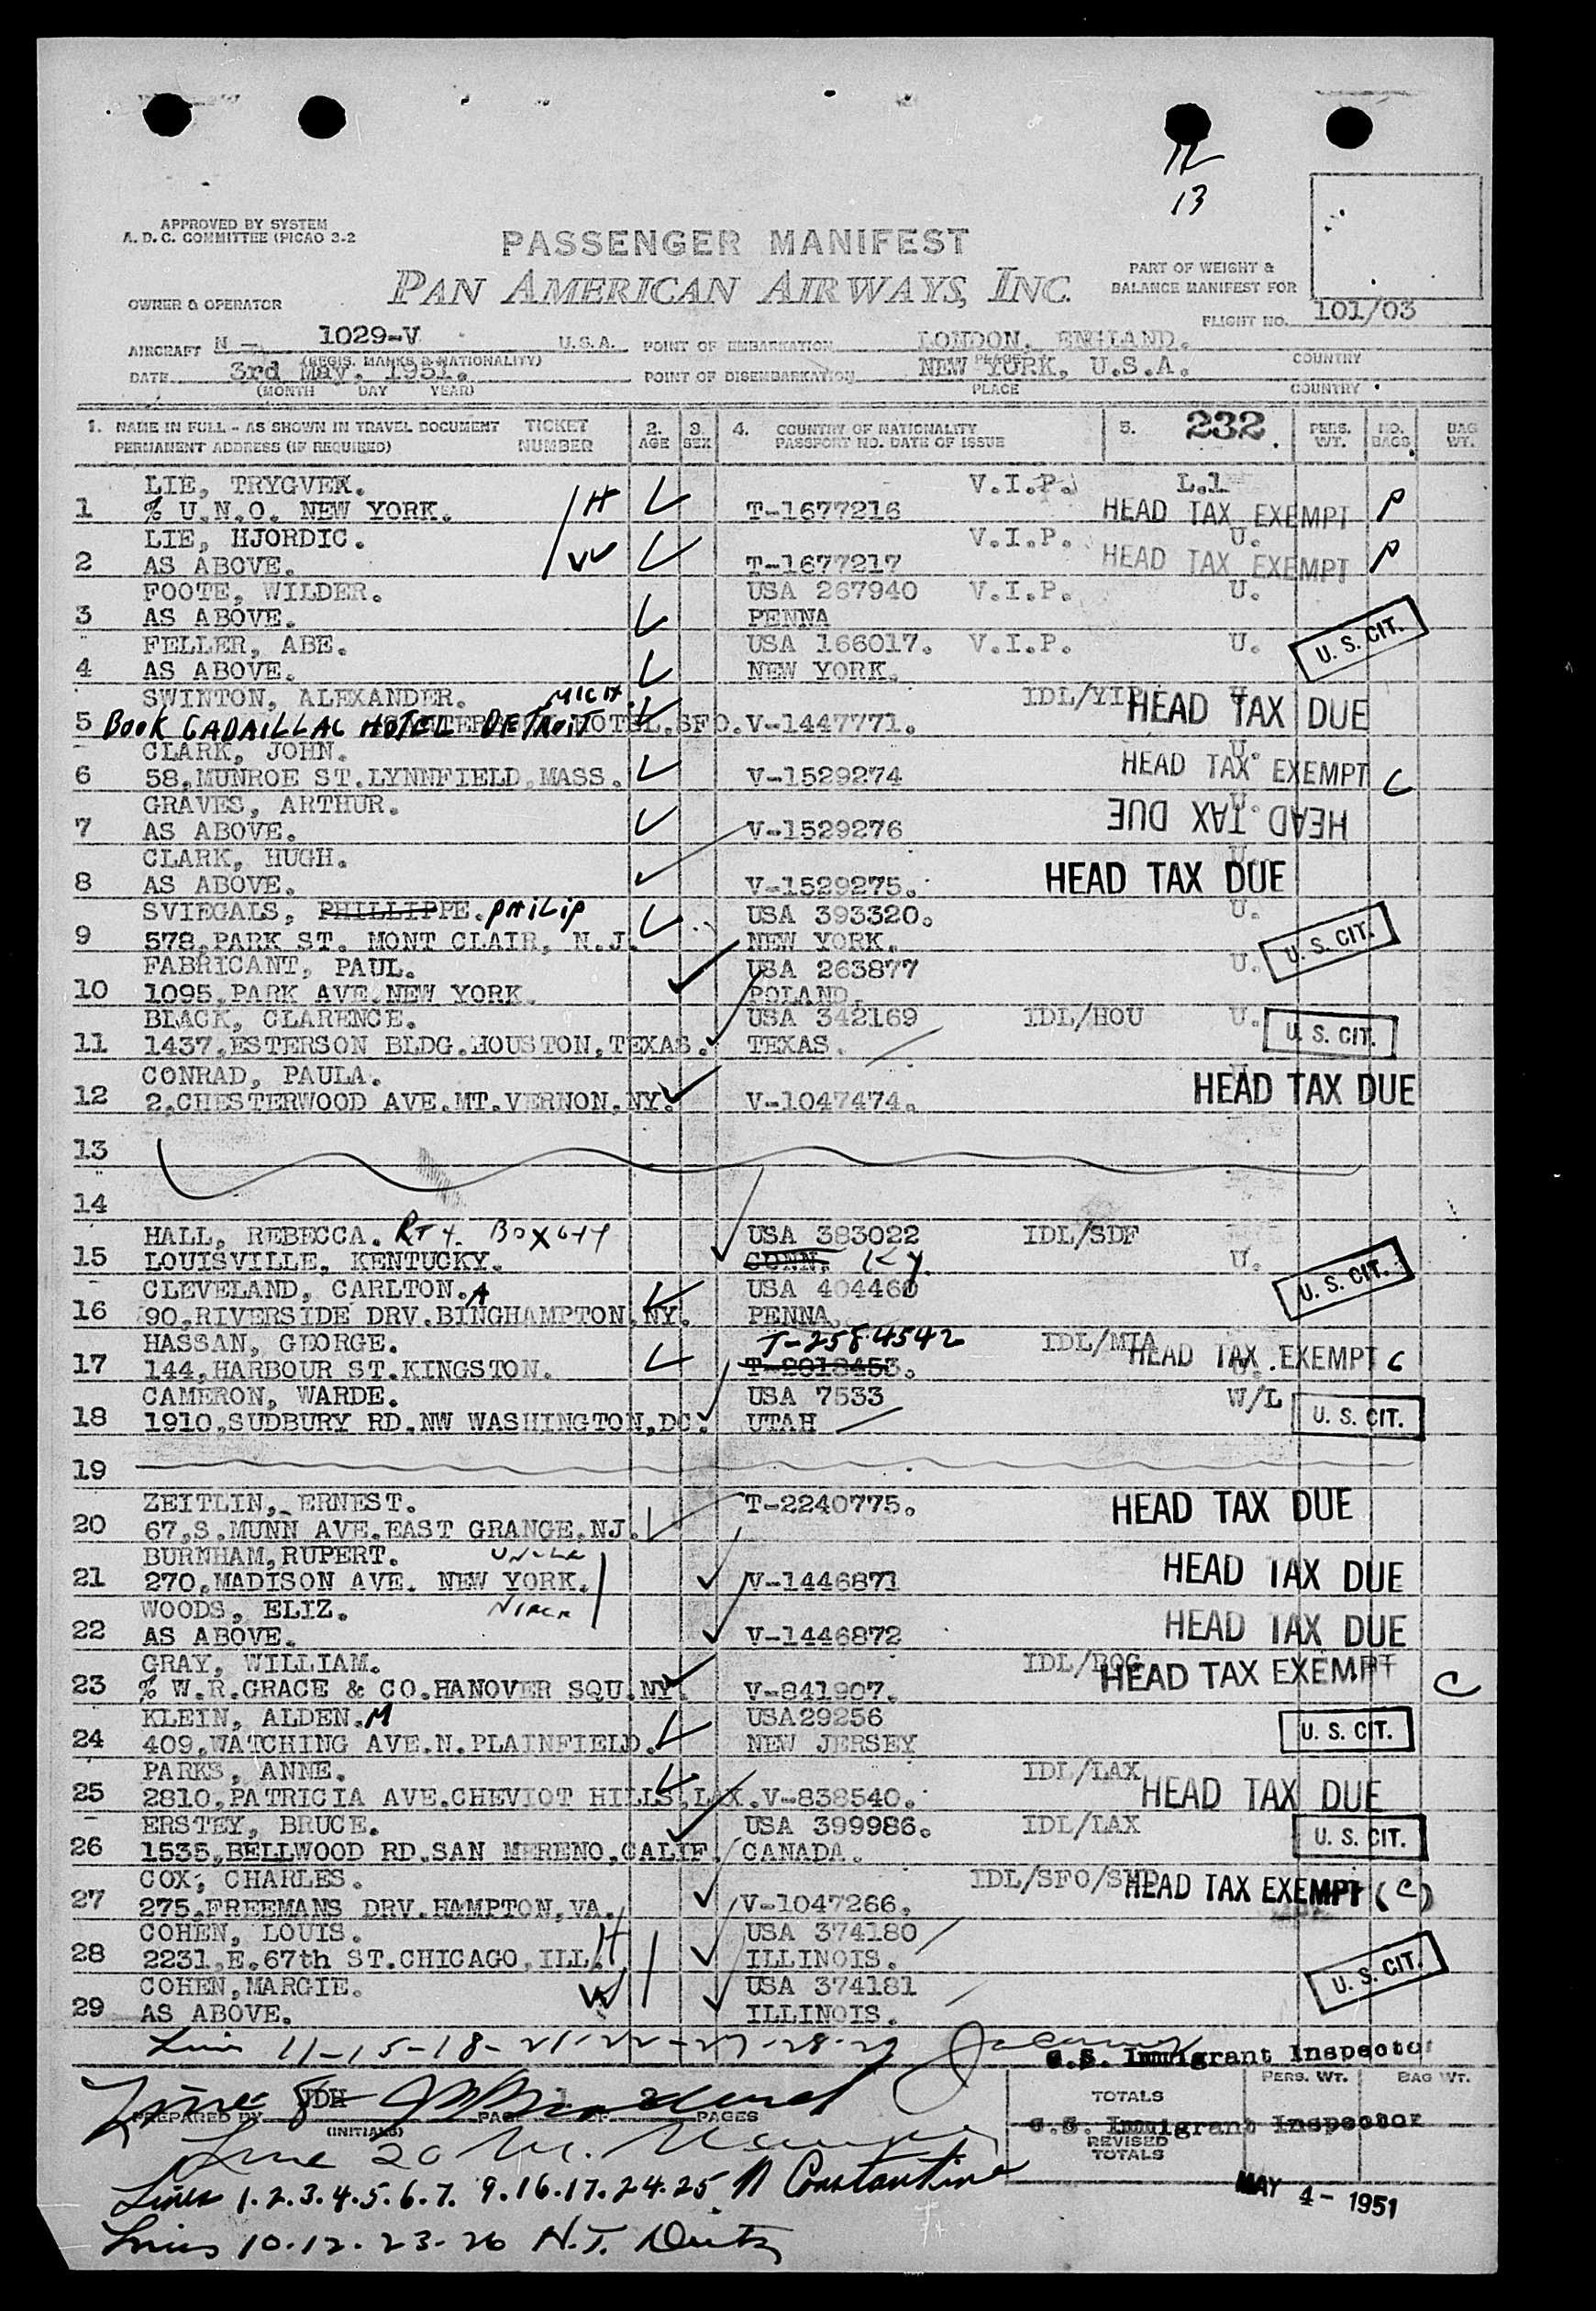 12
13
APPROVED BY SYSTEM
A. D. C. COMMITTEE (PICAO 3-2
PASSENGER MANIFEST
PAN AMERICAN AIRWAYS, INC.
PART OF WEIGHT &
BALANCE MANIFEST FOR
OWNER & OPERATOR
FLIGHT NO. 101/03
AIRCRAFT N - 1029-V U.S.A. POINT OF EMBARKATION LONDON, ENGLAND.
(REGIS. MARKS & NATIONALITY) PLACE COUNTRY
DATE 3rd May, 1951. POINT OF DISEMBARKATION NEW YORK, U.S.A.
(MONTH DAY YEAR) PLACE COUNTRY
1. NAME IN FULL - AS SHOWN IN TRAVEL DOCUMENT TICKET 2. 3. 4. COUNTRY OF NATIONALITY 5. 232. PERS. NO. BAG
PERMANENT ADDRESS (IF REQUIRED) NUMBER AGE SEX PASSPORT NO. DATE OF ISSUE WT. BAGS WT.
LIE, TRYGVEK. V.I.P. L.1
1 % U.N.O. NEW YORK. H T-1677216 HEAD TAX EXEMPT P
LIE, HJORDIC. V.I.P. U.
2 AS ABOVE. W T-1677217 HEAD TAX EXEMPT P
FOOTE, WILDER. USA 267940 V.I.P. U.
3 AS ABOVE. PENNA
FELLER, ABE. USA 166017. V.I.P. U. U. S. CIT.
4 AS ABOVE. NEW YORK.
SWINTON, ALEXANDER. MICH. IDL/YIP HEAD TAX DUE
5 BOOK CADAILLAC HOTEL DETROIT HOTEL.SFO. V-1447771.
CLARK, JOHN. U.
6 58,MUNROE ST.LYNNFIELD,MASS. V-1529274 HEAD TAX EXEMPT C
GRAVES, ARTHUR. U.
7 AS ABOVE. V-1529276 HEAD TAX DUE
CLARK, HUGH. U.
8 AS ABOVE. V-1529275. HEAD TAX DUE
SVIEGALS, PHILLIPPE. PHILIP USA 393320. U.
9 578,PARK ST. MONT CLAIR, N.J. NEW YORK. U. S. CIT.
FABRICANT, PAUL. USA 263877 U.
10 1095,PARK AVE.NEW YORK. POLAND.
BLACK, CLARENCE. USA 342169 IDL/HOU U.
11 1437,ESTERSON BLDG.HOUSTON,TEXAS. TEXAS. U. S. CIT.
CONRAD, PAULA. HEAD TAX DUE
12 2,CHESTERWOOD AVE.MT.VERNON,NY. V-1047474.
13
14
HALL, REBECCA. RT 4. BOX 644 USA 383022 IDL/SDF
15 LOUISVILLE, KENTUCKY. CONN. Ky. U.
CLEVELAND, CARLTON. A USA 404460 U. S. CIT.
16 90,RIVERSIDE DRV.BINGHAMPTON,NY. PENNA.
HASSAN, GEORGE. T-2584542 IDL/MIA
17 144,HARBOUR ST.KINGSTON. T-2018453. HEAD TAX EXEMPT C
CAMERON, WARDE. USA 7533 W/L
18 1910,SUDBURY RD.NW WASHINGTON,DC. UTAH U. S. CIT.
19
ZEITLIN, ERNEST. T-2240775. HEAD TAX DUE
20 67,S.MUNN AVE.EAST GRANGE,NJ.
BURNHAM,RUPERT. UNCLE HEAD TAX DUE
21 270,MADISON AVE. NEW YORK. V-1446871
WOODS, ELIZ. NIECE HEAD TAX DUE
22 AS ABOVE. V-1446872
GRAY, WILLIAM. IDL/BOG HEAD TAX EXEMPT
23 % W.R.GRACE & CO.HANOVER SQU.NY. V-841907. C
KLEIN, ALDEN. M USA29256 U. S. CIT.
24 409,WATCHING AVE.N.PLAINFIELD. NEW JERSEY
PARKS, ANNE. IDL/LAX
25 2810,PATRICIA AVE.CHEVIOT HILLS,LAX. V-838540. HEAD TAX DUE
ERSTEY, BRUCE. USA 399986. IDL/LAX U. S. CIT.
26 1535,BELLWOOD RD.SAN MERENO,CALIF. CANADA.
COX, CHARLES. IDL/SFO/ HEAD TAX EXEMPT (C)
27 275,FREEMANS DRV.HAMPTON,VA. V-1047266.
COHEN, LOUIS. H USA 374180
28 2231,E.67th ST.CHICAGO,ILL. ILLINOIS.
COHEN,MARGIE. W USA 374181 U. S. CIT.
29 AS ABOVE. ILLINOIS.
Lines 11-15-18-21-22-27-28-29
U.S. Immigrant Inspector
Line 8 JDH
PREPARED BY (INITIALS) PAGE 1 OF 2 PAGES
TOTALS PERS. WT. BAG WT.
U.S. Immigrant Inspector
REVISED
TOTALS
Line 20
Lines 1.2.3.4.5.6.7. 9.16.17.24.25 N Constantine
MAY 4 - 1951
Lines 10.12.23.26 H.T. Dietz